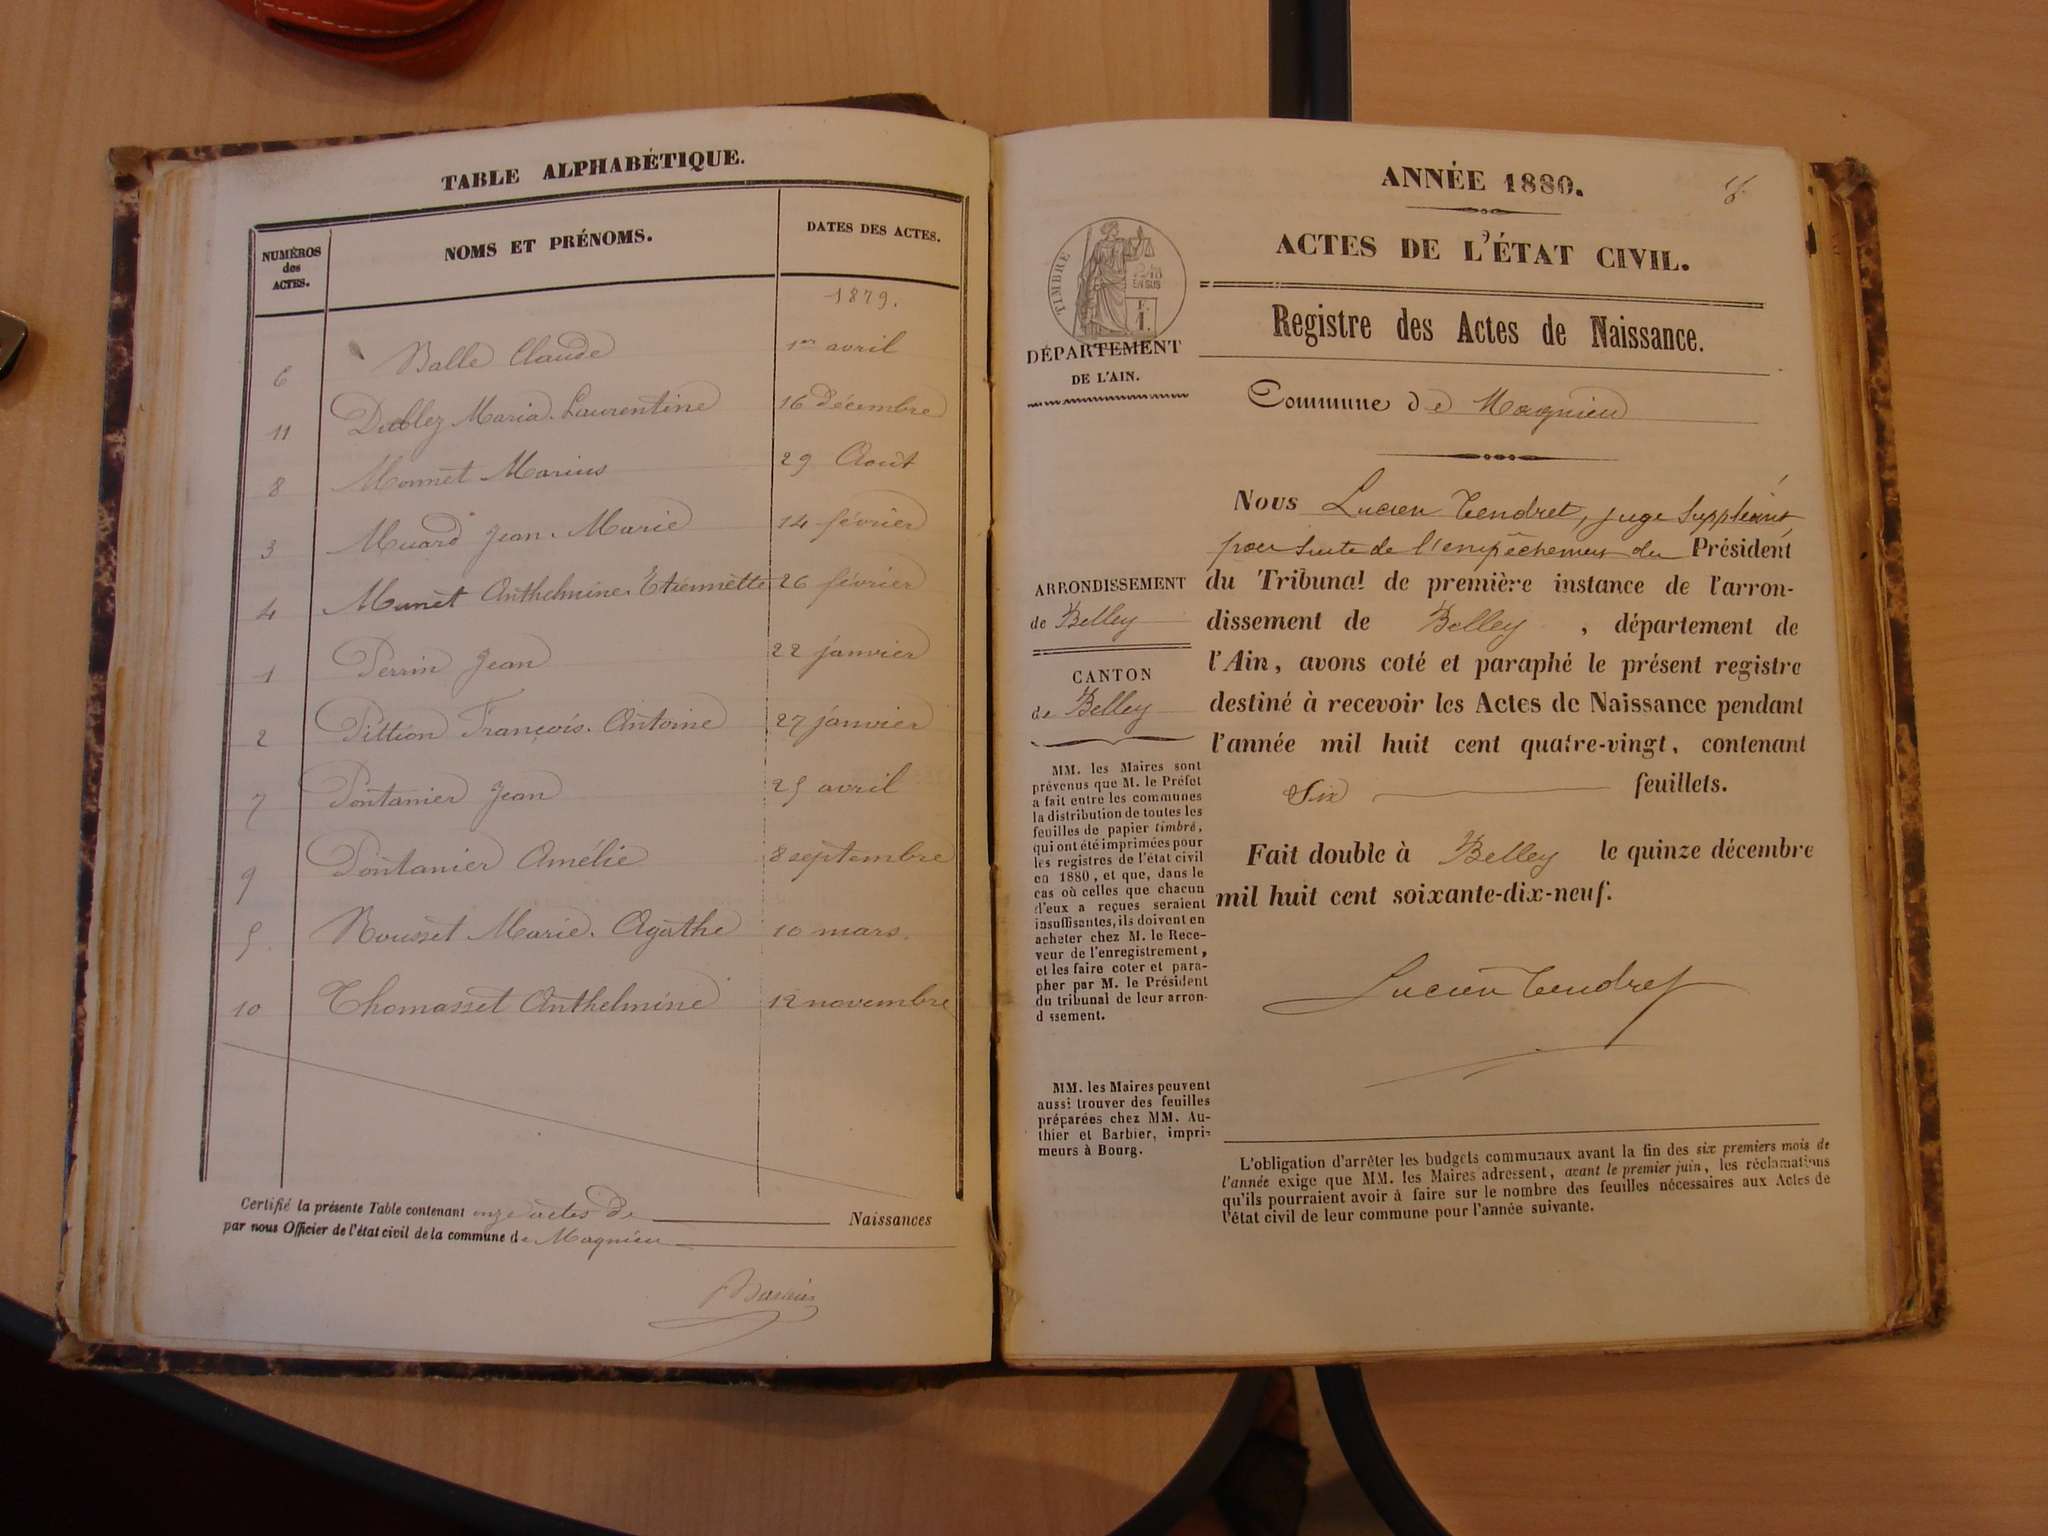 TABLE ALPHABÉTIQUE.
NUMÉROS des ACTES.
NOMS ET PRÉNOMS.
DATES DES ACTES.
1879.
6 Balle Claude 1er avril
11 Dublez Maria Laurentine 16 décembre
8 Monnet Marius 29 Août
3 Muard Jean-Marie 14 février
4 Munet Anthelmine Etiennette 26 février
1 Perrin Jean 22 janvier
2 Pittion François-Antoine 27 janvier
7 Pontanier Jean 25 avril
9 Pontanier Amélie 8 septembre
5. Rousset Marie-Agathe 10 mars.
10 Thomasset Anthelmine 12 novembre
Certifié la présente Table contenant onze actes de Naissances
par nous Officier de l'état civil de la commune de Magnieu
ANNÉE 1880.
ACTES DE L'ÉTAT CIVIL.
TIMBRE
EN SUS
Registre des Actes de Naissance.
DÉPARTEMENT
DE L'AIN.
Commune de Magnieu
ARRONDISSEMENT
de Belley
CANTON
de Belley
MM. les Maires sont
prévenus que M. le Préfet
a fait entre les communes
la distribution de toutes les
feuilles de papier timbré,
qui ont été imprimées pour
les registres de l'état civil
en 1880, et que, dans le
cas où celles que chacun
d'eux a reçues seraient
insuffisantes, ils doivent en
acheter chez M. le Rece-
veur de l'enregistrement,
et les faire coter et para-
pher par M. le Président
du tribunal de leur arron-
d ssement.
MM. les Maires peuvent
aussi trouver des feuilles
préparées chez MM. Au-
thier et Barbier, impri-
meurs à Bourg.
Nous Lucien Tendret, juge suppléant
pour suite de l'empêchement du Président
du Tribunal de première instance de l'arron-
dissement de Belley, département de
l'Ain, avons coté et paraphé le présent registre
destiné à recevoir les Actes de Naissance pendant
l'année mil huit cent quatre-vingt, contenant
Six feuillets.
Fait double à Belley le quinze décembre
mil huit cent soixante-dix-neuf.
Lucien Tendret
L'obligation d'arrêter les budgets communaux avant la fin des six premiers mois de
l'année exige que MM. les Maires adressent, avant le premier juin, les réclamations
qu'ils pourraient avoir à faire sur le nombre des feuilles nécessaires aux Actes de
l'état civil de leur commune pour l'année suivante.